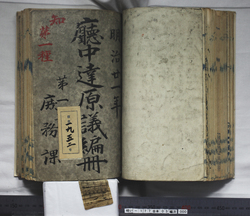 明治廿一年
廳中達原議編冊
第一
庶務課
知
第一種
二九五二